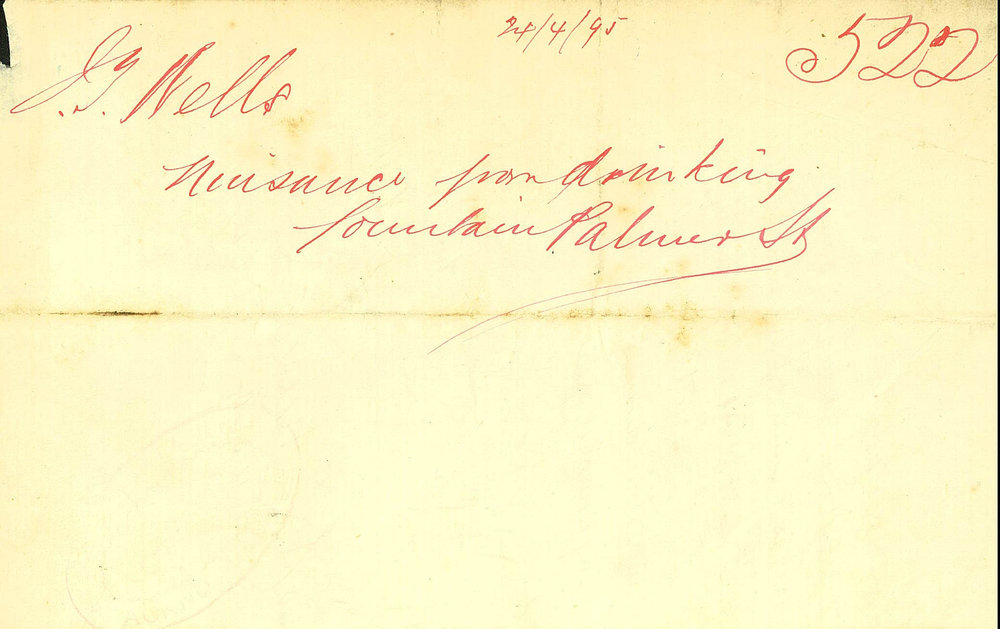 24/4/95
522
J. G. Wells
Nuisance from drinking
fountain Palmer St